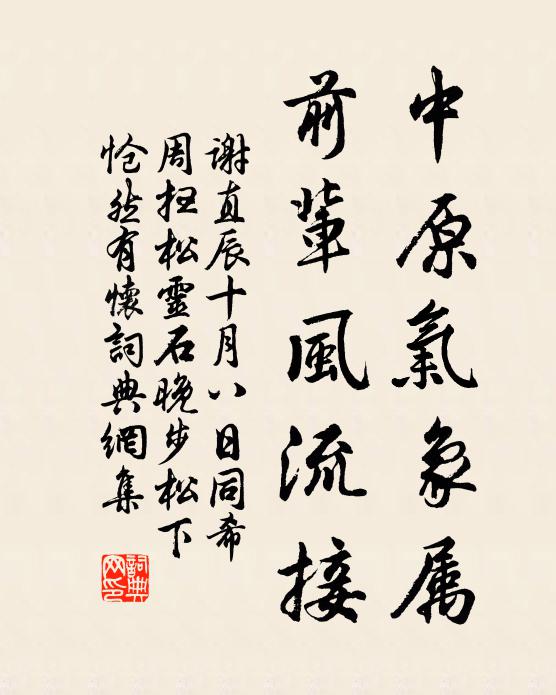 中原氣象属
前輩風流接
谢直辰十月八日同希
周扫松靈石晚步松下
怆然有懷詞典網集
詞典网印